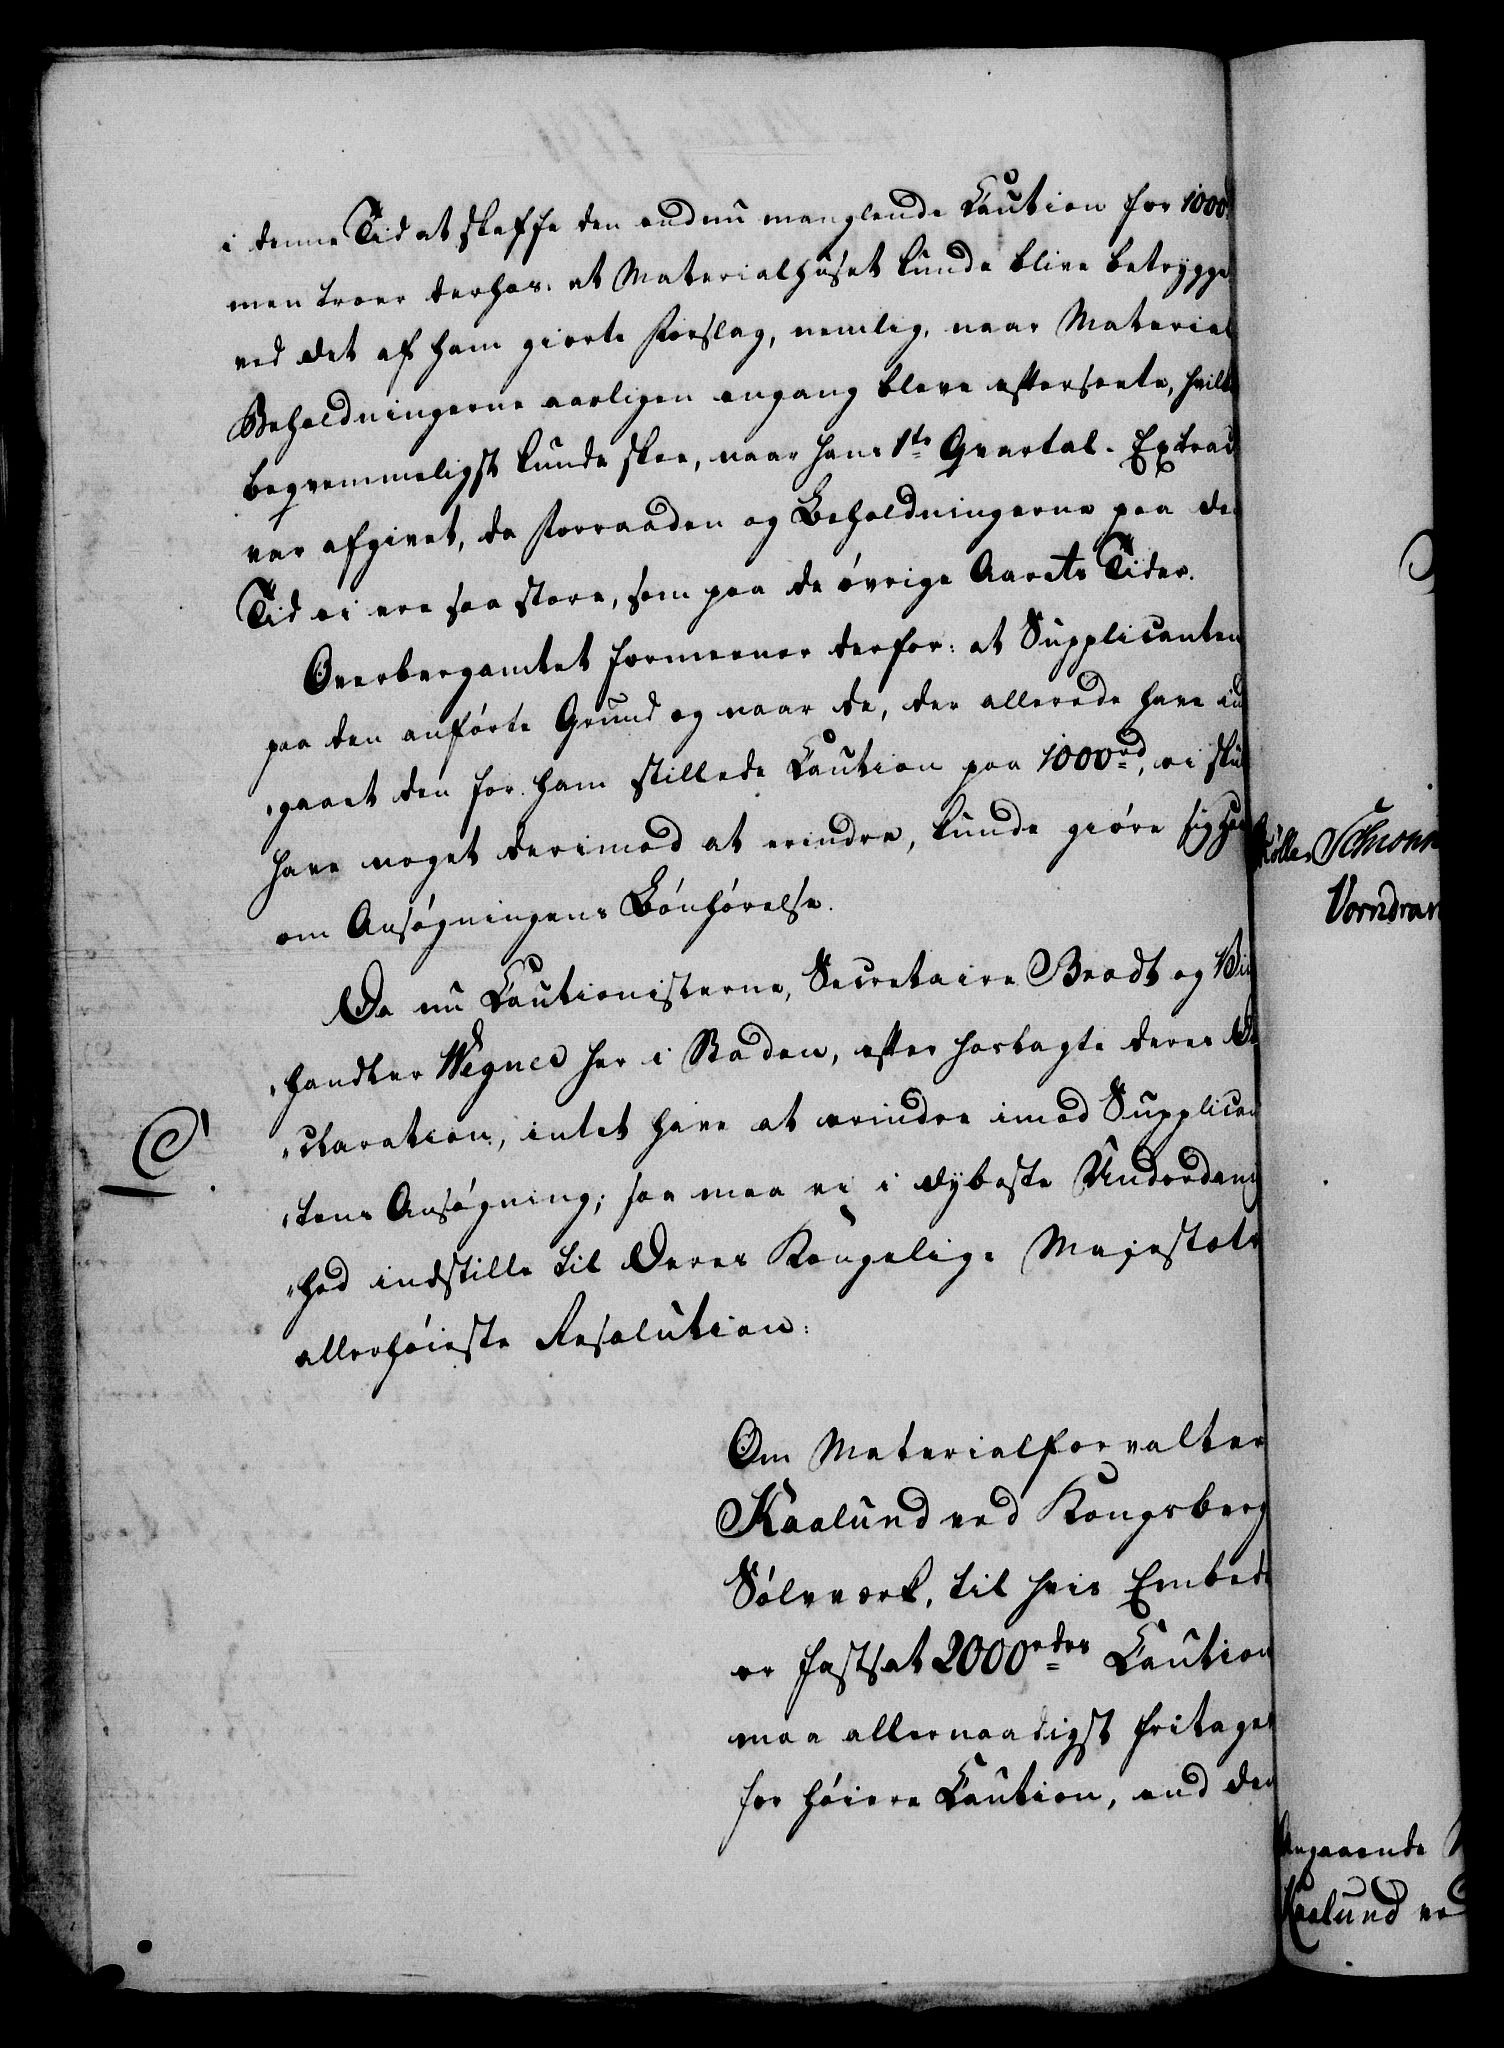 i denne Tid at skaffe den endnu manglende Caution for 1000
men troer derhos: at Materialhuset kunde blive betrygge
ved det af ham giorte Forslag, nemlig, naar Material
Beholdningerne aarligen engang bleve efterseete, hvilke
beqvemmeligst kunde skee, naar hans 1te Qvartal-Extrac
var afgivet, da Forraaden og Beholdningerne paa de
Tid ei ere saa store, som paa de øvrige Aarets Tider.
Overbergamtet formeener derfor: at Supplicanten
paa den anførte Grund og naar de, der allerede have ind
gaaet den for ham stillede Caution paa 1000rd, ei skul
have noget derimod at erindre, kunde giøre sig Haa
om Ansøgningens Bønhørelse.
Da nu Cautionisterne, Secretaire Bradt og Vi
handler Wegner her i Staden, efter hoslagte deres De
claration, intet have at erindre imod Supplican
tens Ansøgning; saa maa vi i dybeste Underdanig
hed indstille til Deres Kongelige Majestæts
allerhøieste Resolution:
Om Materialforvalter
Kaalund ved Kongsberg
Sølvværk, til hvis Embede
er fastsat 2000rdrs Caution
maa allernaadigst fritages
for høiere Caution, end den
Schionn
Vorndran
Angaaende
Kaalund ved